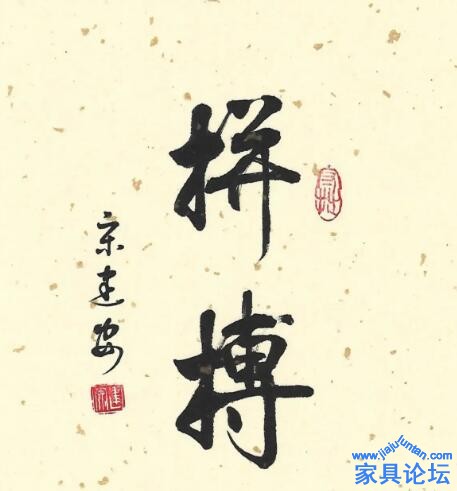 拼搏
宗建安
www.jiajuluntan.com
家具论坛